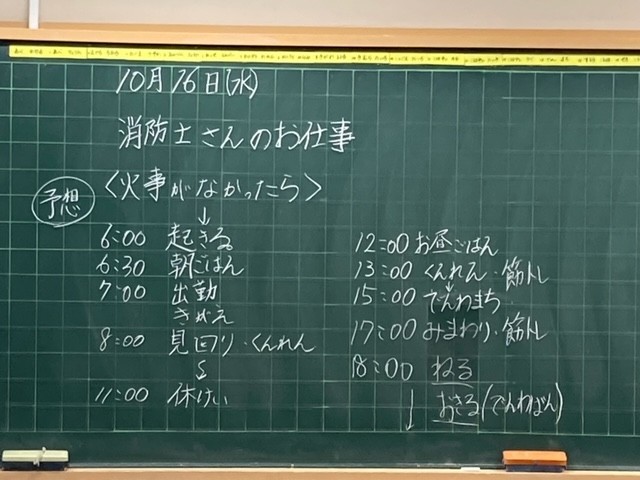 10月16日(水)
消防士さんのお仕事
予想
〈火事がなかったら〉
↓
6:00 起きる
6:30 朝ごはん
7:00 出勤
きがえ
8:00 見回り・くんれん
↓
11:00 休けい
12:00 お昼ごはん
13:00 くんれん・筋トレ
↓
15:00 でんわまち
17:00 みまわり・筋トレ
18:00 ねる
↓ おきる(でんわばん)